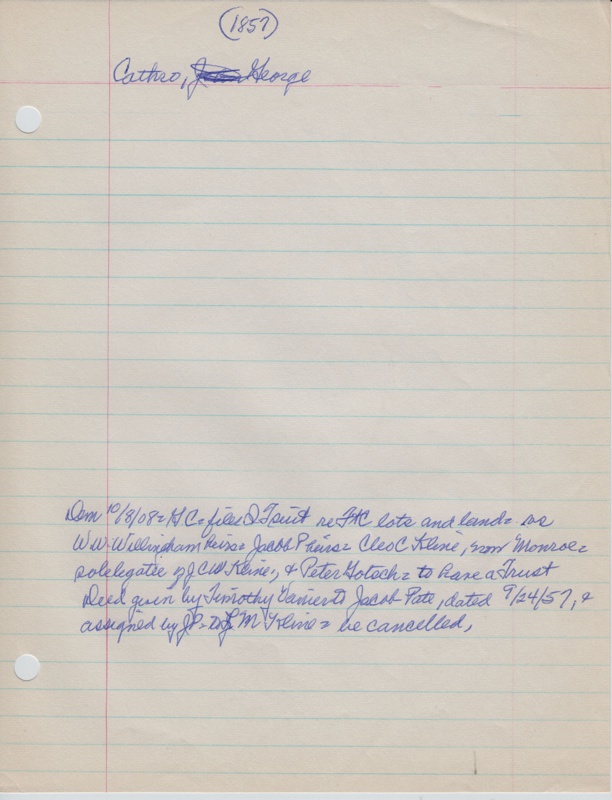 (1857)
Cathro, George
Dem 10/8/08 = GC = files Q Tsuit re FHC lots and land = vs
W.W. Willingham heirs = Jacob P heirs = Cleo C Kline, now Monroe =
sole legatee of J.C.W. Kline, & Peter Gotsch = to have a Trust
Deed given by Timothy to Jacob Pate, dated 9/24/57, &
assigned by J.P. to M Kline = be cancelled,